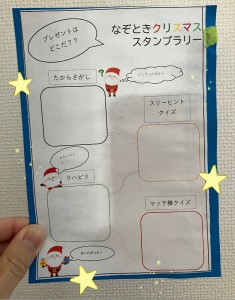 プレゼントは
どこだ??
なぞときクリスマス
スタンプラリー
たからさがし
スリーヒント
クイズ
リハビリ
マッチ棒クイズ